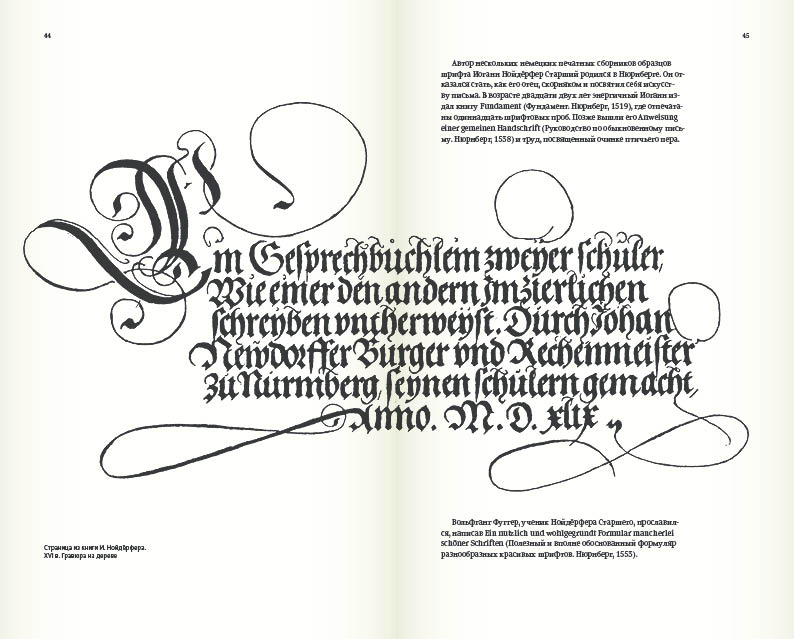 44
45
Автор нескольких немецких печатных сборников образцов
шрифта Иоганн Нойдёрфер Старший родился в Нюрнберге. Он от-
казался стать, как его отец, скорняком и посвятил себя искусст-
ву письма. В возрасте двадцати двух лет энергичный Иоганн из-
дал книгу Fundament (Фундамент. Нюрнберг, 1519), где отпечата-
ны одиннадцать шрифтовых проб. Позже вышли его Anweisung
einer gemeinen Handschrift (Руководство по обыкновенному пись-
му. Нюрнберг, 1538) и труд, посвященный очинке птичьего пера.
Ein Gesprechbüchlein zweyer schüler,
Wie einer den andern im zierlichen
schreyben vntherweyst. Durch Johan
Newdorffer Burger vnd Rechenmeister
zu Nürmberg, seynen schülern gemacht,
Anno. M. D. xlix
Страница из книги И. Нойдёрфера.
XVI в. Гравюра на дереве
Вольфганг Фуггер, ученик Нойдёрфера Старшего, прославил-
ся, написав Ein nutzlich und wohlgegrundt Formular mancherlei
schöner Schriften (Полезный и вполне обоснованный формуляр
разнообразных красивых шрифтов. Нюрнберг, 1553).